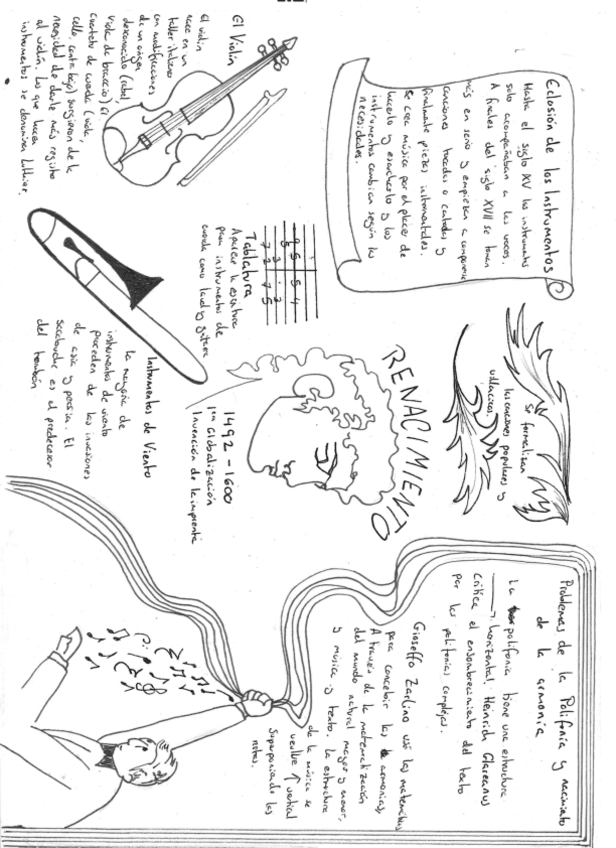 RENACIMIENTO
1492 - 1600
1ra Globalización
Invención de la imprenta
Eclosión de los Instrumentos
Hasta el siglo XV los instrumentos
solo acompañaban a las voces.
A finales del siglo XVII se toman
más en serio y empiezan a componerse
canciones tocadas o cantadas y
finalmente piezas instrumentales.
Se crea música por el placer de
hacerlo y escucharlo y los
instrumentos cambian según las
necesidades.
El Violín
El violín
nace en un
taller italiano
con modificaciones
de un origen
desconocido (rabel,
viola de braccio) El
cuarteto de cuerda (viola,
cello, contrabajo) surgieron de la
necesidad de darle más registro
al violín. Los que hacen
instrumentos se denominan luthier.
Tablatura
Aparece la escritura
para instrumentos de
cuerda como laúd y guitarra
Instrumentos de Viento
La mayoría de
instrumentos de viento
proceden de las invasiones
de asia y persia. El
sacabuche es el predecesor
del trombón
Se formalizan
las canciones populares y
villancicos
Problemas de la Polifonía y nacimiento
de la armonía
La polifonía tiene una estructura
horizontal. Heinrich Glareanus
critica el ensombrecimiento del texto
por las polifonías complejas.
Gioseffo Zarlino usó las matemáticas
para concebir las armonías,
A través de la matematización
del mundo natural mayor y menor,
y música y texto. La estructura
de la música se
vuelve ↑ vertical
Superponiendo las
notas.